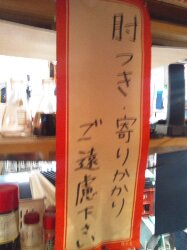 肘つき・寄りかかり
ご遠慮下さい